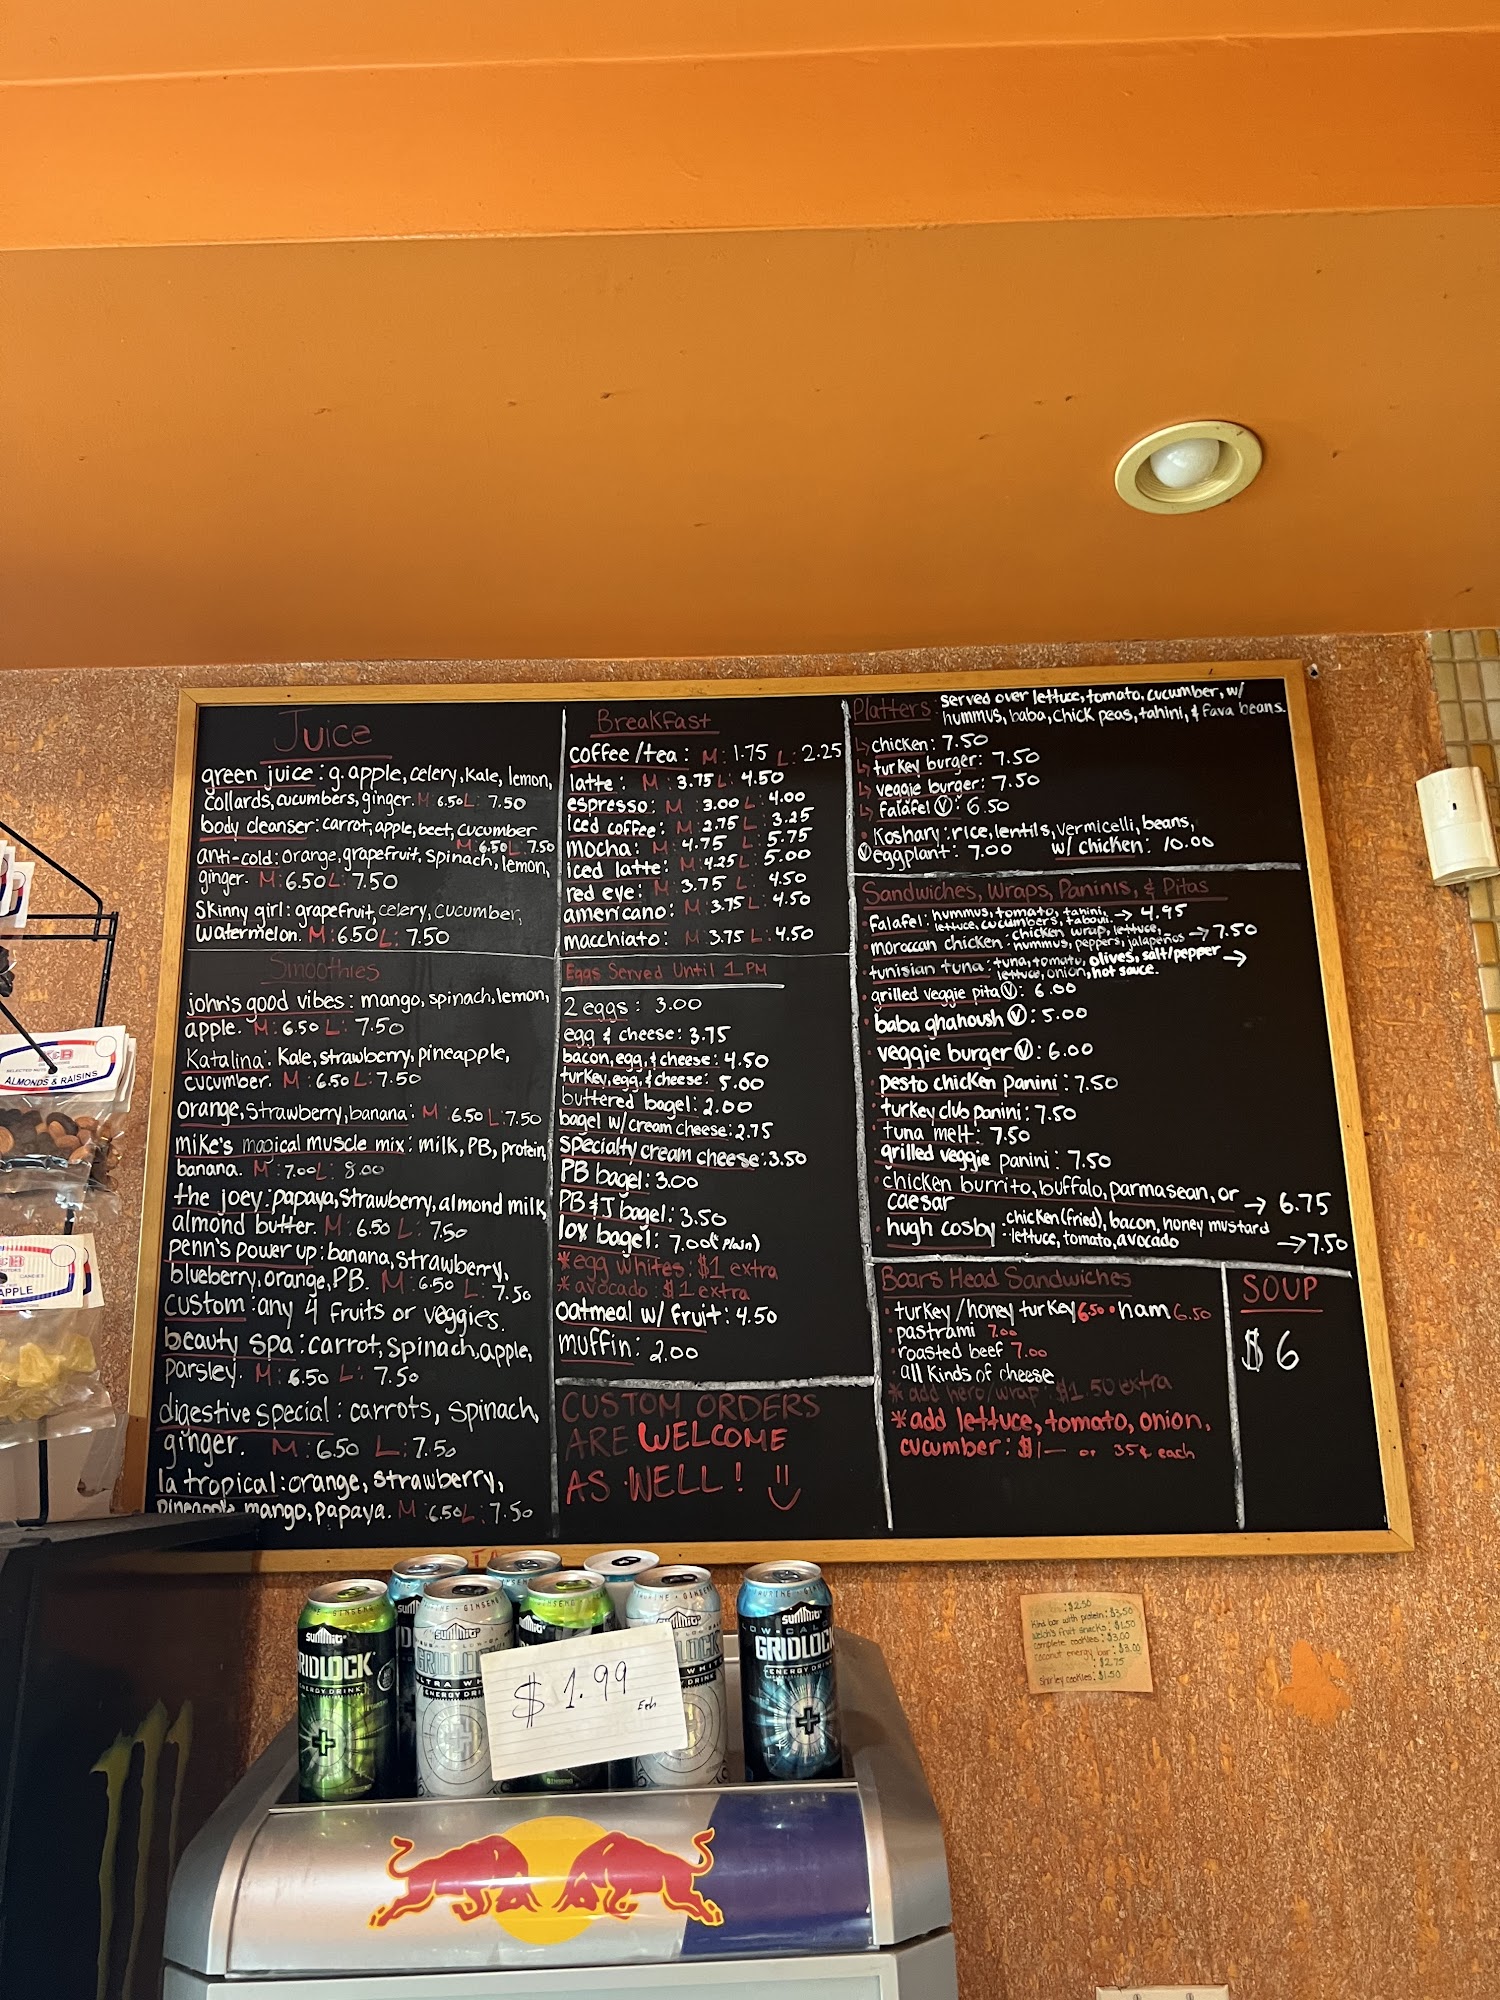 Juice
green juice: g. apple, celery, kale, lemon,
collards, cucumbers, ginger. M: 6.50 L: 7.50
body cleanser: carrot, apple, beet, cucumber
M: 6.50 L: 7.50
anti-cold: orange, grapefruit, spinach, lemon,
ginger. M: 6.50 L: 7.50
skinny girl: grapefruit, celery, cucumber,
watermelon. M: 6.50 L: 7.50
Smoothies
john's good vibes: mango, spinach, lemon,
apple. M: 6.50 L: 7.50
Katalina: Kale, strawberry, pineapple,
cucumber. M: 6.50 L: 7.50
orange, strawberry, banana: M: 6.50 L: 7.50
mike's magical muscle mix: milk, PB, protein,
banana. M: 7.00 L: 8.00
the joey: papaya, strawberry, almond milk,
almond butter. M: 6.50 L: 7.50
penn's power up: banana, strawberry,
blueberry, orange, PB. M: 6.50 L: 7.50
custom: any 4 fruits or veggies.
beauty spa: carrot, spinach, apple,
parsley. M: 6.50 L: 7.50
digestive special: carrots, spinach,
ginger. M: 6.50 L: 7.50
la tropical: orange, strawberry,
pineapple, mango, papaya. M: 6.50 L: 7.50
Breakfast
coffee/tea: M: 1.75 L: 2.25
latte: M: 3.75 L: 4.50
espresso: M: 3.00 L: 4.00
iced coffee: M: 2.75 L: 3.25
mocha: M: 4.75 L: 5.75
iced latte: M: 4.25 L: 5.00
red eye: M: 3.75 L: 4.50
americano: M: 3.75 L: 4.50
macchiato: M: 3.75 L: 4.50
Eggs Served Until 1 PM
2 eggs: 3.00
egg & cheese: 3.75
bacon, egg, & cheese: 4.50
turkey, egg, & cheese: 5.00
buttered bagel: 2.00
bagel w/cream cheese: 2.75
specialty cream cheese: 3.50
PB bagel: 3.00
PB & J bagel: 3.50
lox bagel: 7.00 (* Plain)
* egg whites: $1 extra
* avocado: $1 extra
oatmeal w/ fruit: 4.50
muffin: 2.00
CUSTOM ORDERS
ARE WELCOME
AS WELL!
Platters: served over lettuce, tomato, cucumber, w/
hummus, baba, chick peas, tahini, & fava beans.
chicken: 7.50
turkey burger: 7.50
veggie burger: 7.50
falafel Ⓥ: 6.50
• Koshary: rice, lentils, vermicelli, beans,
Ⓥ eggplant: 7.00 w/ chicken: 10.00
Sandwiches, Wraps, Paninis, & Pitas
• falafel: hummus, tomato, tahini, → 4.95
lettuce, cucumbers, tabouli
• moroccan chicken: chicken wrap, lettuce, → 7.50
hummus, peppers, jalapeños
• tunisian tuna: tuna, tomato, olives, salt/pepper →
lettuce, onion, hot sauce.
• grilled veggie pita Ⓥ: 6.00
• baba ghanoush Ⓥ: 5.00
• veggie burger Ⓥ: 6.00
• pesto chicken panini: 7.50
• turkey club panini: 7.50
• tuna melt: 7.50
• grilled veggie panini: 7.50
• chicken burrito, buffalo, parmasean, or → 6.75
caesar
• hugh cosby: chicken (fried), bacon, honey mustard
lettuce, tomato, avocado → 7.50
Boars Head Sandwiches
• turkey/honey turkey 6.50 • ham 6.50
• pastrami 7.00
• roasted beef 7.00
all kinds of cheese
* add hero/wrap: $1.50 extra
* add lettuce, tomato, onion,
cucumber: $1— or 35¢ each
SOUP
$6
ALMONDS & RAISINS
APPLE
summit
GRIDLOCK
ENERGY DRINK
summit
GRIDLOCK
ENERGY DRINK
summit
LOW-CAL
GRIDLOCK
ENERGY DRINK
$1.99
Each
$2.50
Kind bar with protein: $3.50
Welch's fruit snacks: $1.50
complete cookies: $3.00
coconut energy bar: $3.00
$2.75
shirley cookies: $1.50